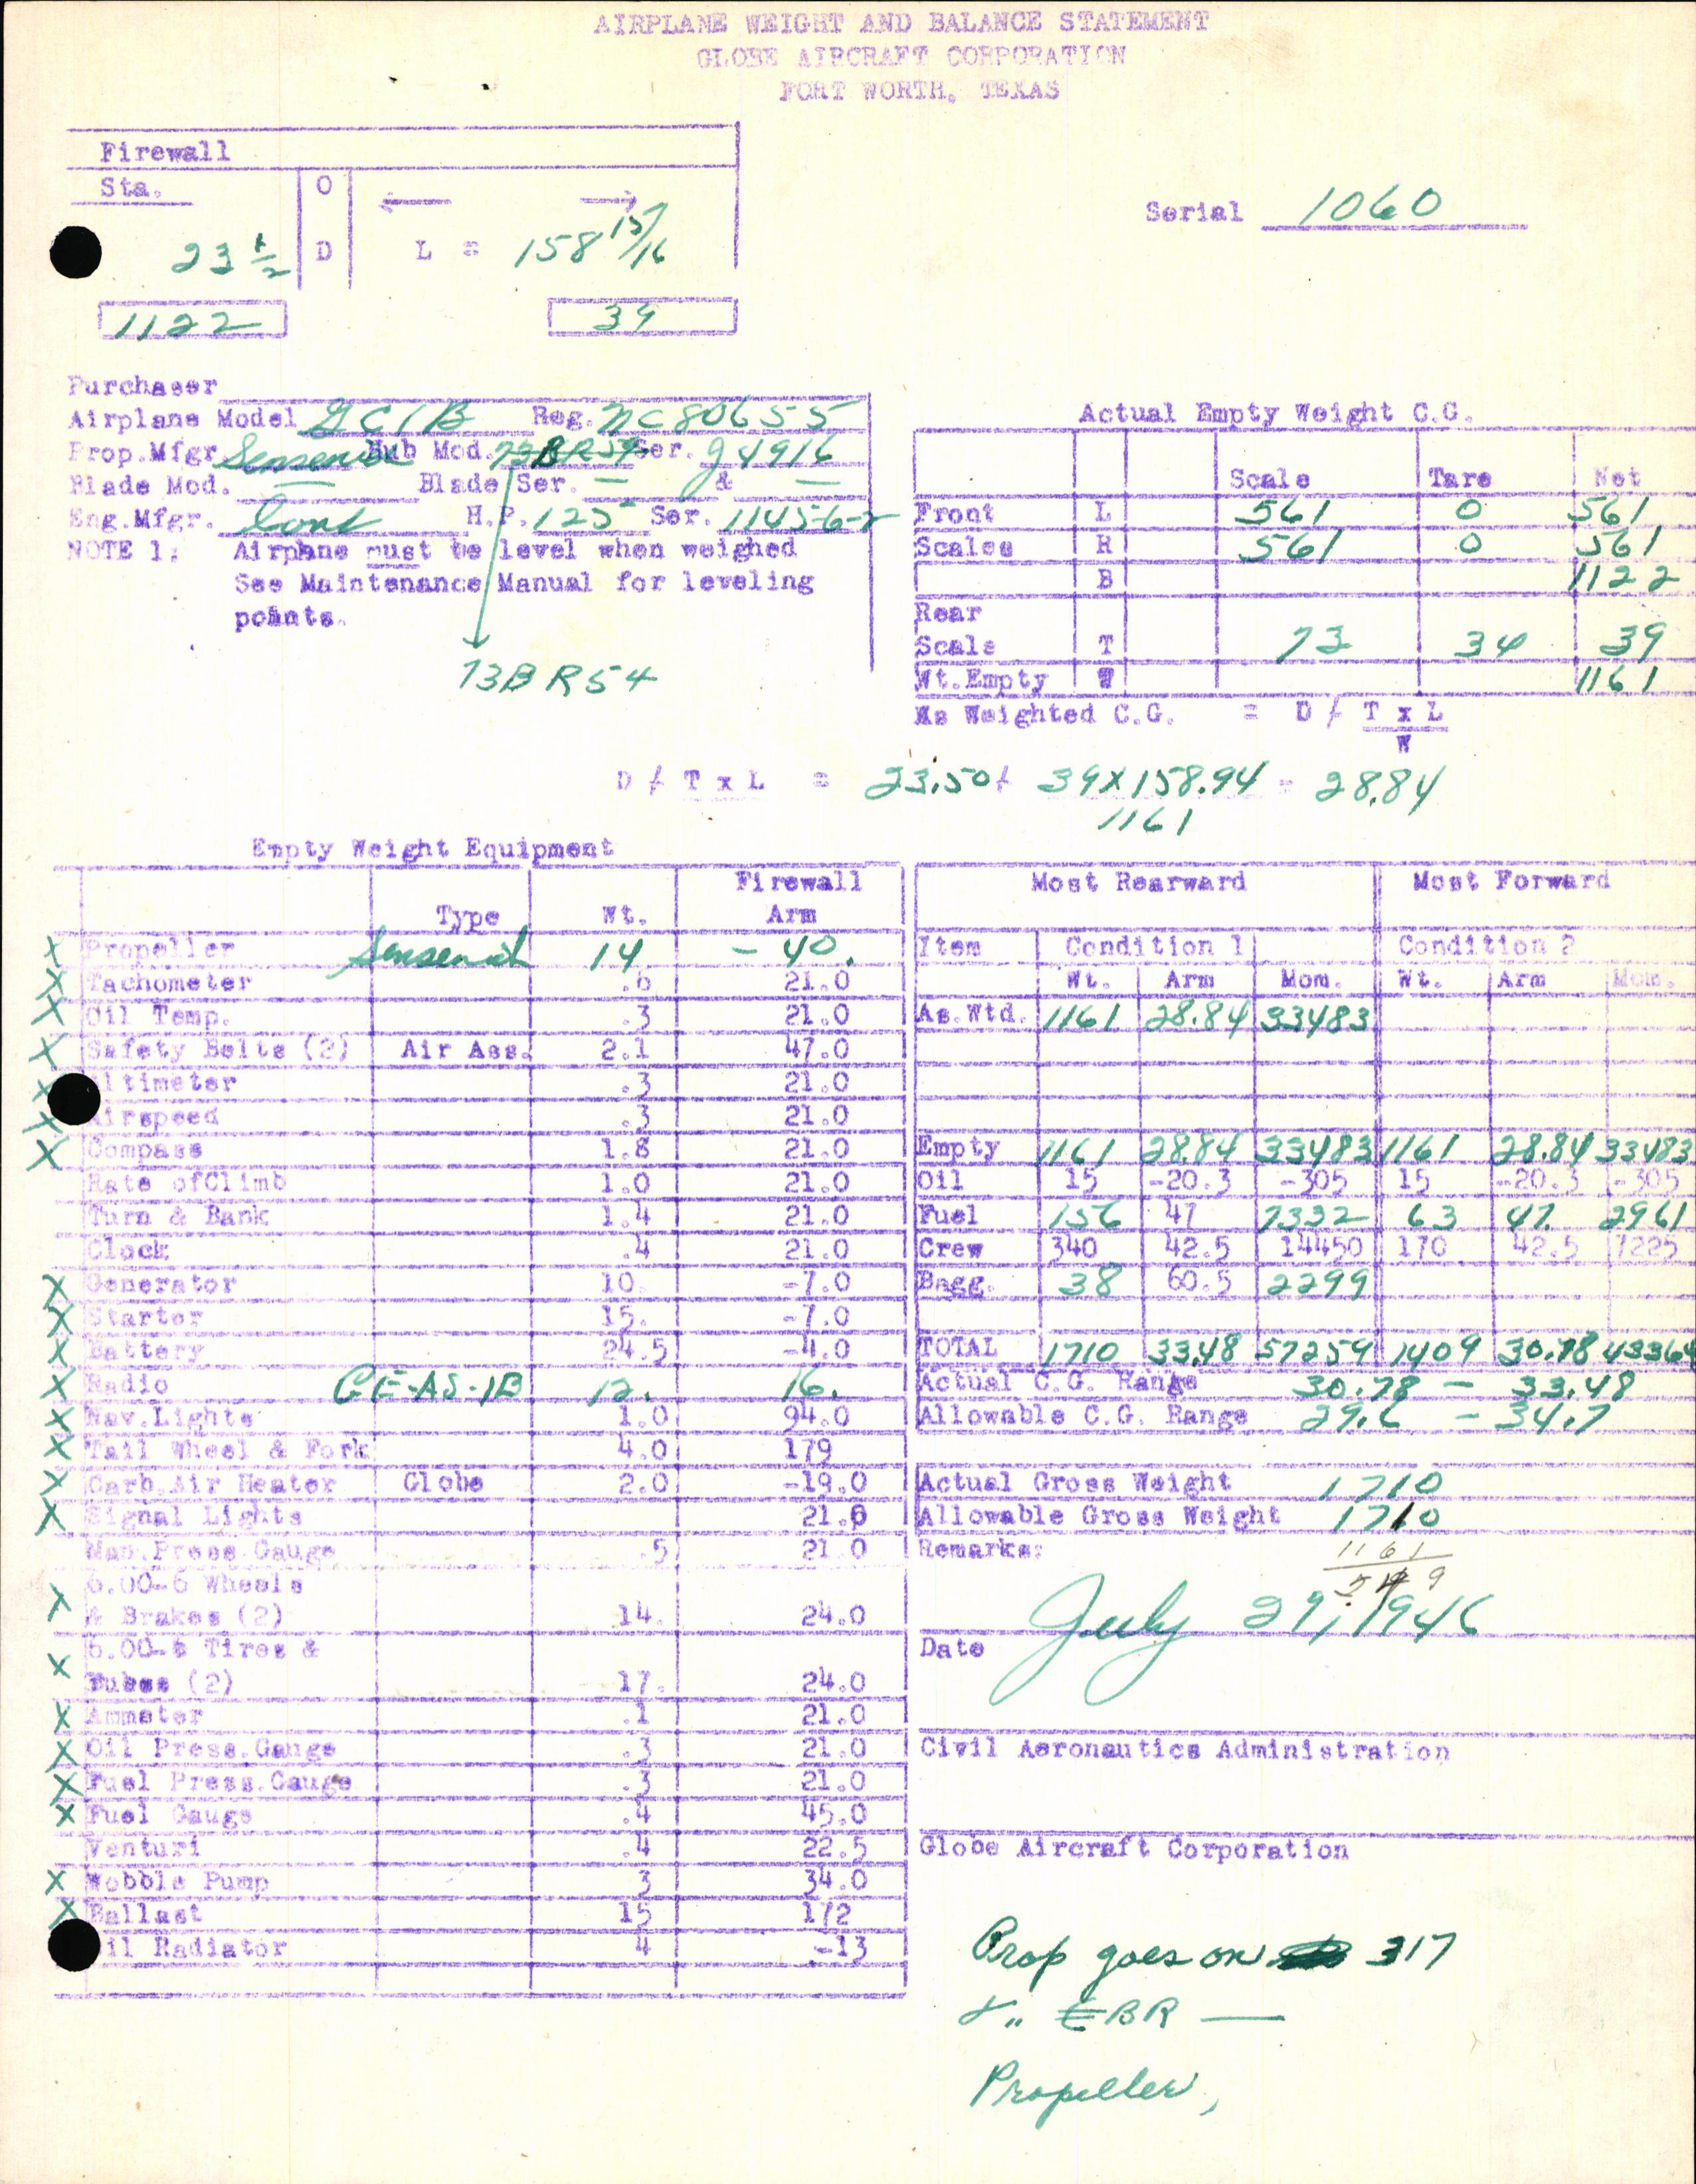 AIRPLANE WEIGHT AND BALANCE STATEMENT
GLOBE AIRCRAFT CORPORATION
FORT WORTH, TEXAS
Firewall
Sta. O
23 1/2 D L = 158 15/16
1122 39
Serial 1060
Purchaser
Airplane Model GC1B Reg. NC80655
Prop.Mfgr Sensenich Hub Mod. 73BR54 Ser. J4916
Blade Mod. — Blade Ser. — & —
Eng.Mfgr. Cont H.P. 125 Ser.
NOTE 1: Airplane must be level when weighed
See Maintenance Manual for leveling
points.
73BR54
Actual Empty Weight C.G.
Scale Tare Net
Front L 561 0 561
Scales R 561 0 561
B 1122
Rear
Scale T 73 34 39
Wt.Empty W 1161
As Weighted C.G. = D / T x L
W
D / T x L = 23.50 / 39 x 158.94 = 28.84
1161
Empty Weight Equipment
Type Wt. Firewall Arm
X Propeller Sensenich 14 -40.
X Tachometer 21.0
X Oil Temp. .3 21.0
X Safety Belts (2) Air Ass. 2.1 47.0
X ltimeter .3 21.0
X irspeed .3 21.0
X Compass 1.8 21.0
Rate ofClimb 1.0 21.0
Turn & Bank 1.4 21.0
Clock .4 21.0
X Generator 10. -7.0
X Starter 15. -7.0
X Battery 24.5 -4.0
X Radio GE-AS-1B 12. 16.
X Nav.Lights 1.0 94.0
X Tail Wheel & Fork 4.0 179
X Carb.Air Heater Globe 2.0 -19.0
X Signal Lights 21.0
Man.Press.Gauge .5 21.0
6.00-6 Wheels
X & Brakes (2) 14. 24.0
6.00-6 Tires &
X Tubes (2) 17. 24.0
X Ammeter .1 21.0
X Oil Press.Gauge .3 21.0
X Fuel Press.Gauge .3 21.0
X Fuel Gauge .4 45.0
Venturi .4 22.5
X Wobble Pump 3 34.0
X Ballast 15 172
il Radiator 4 -13
Most Rearward Most Forward
Item Condition 1 Condition 2
Wt. Arm Mom. Wt. Arm Mom.
As Wtd. 1161 28.84 33483
Empty 1161 28.84 33483 1161 28.84 33483
Oil 15 -20.3 -305 15 -20.3 -305
Fuel 156 47 7332 63 47. 2961
Crew 340 42.5 14450 170 42.5 7225
Bagg. 38 60.5 2299
TOTAL 1710 33.48 57259 1409 30.78 43364
Actual C.G. Range 30.78 - 33.48
Allowable C.G. Range 29.6 - 34.7
Actual Gross Weight 1710
Allowable Gross Weight 1710
Remarks: 1161
July 29, 1946
Date
Civil Aeronautics Administration
Globe Aircraft Corporation
Prop goes on 317
BR —
Propeller,